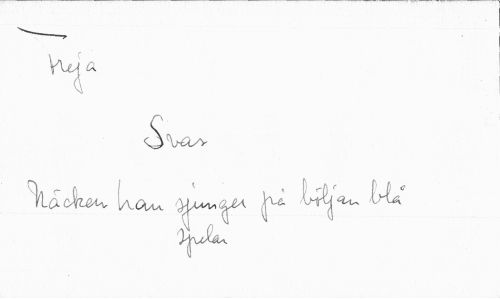 Freja
Svar
Näcken han sjunger på böljan blå
spelar